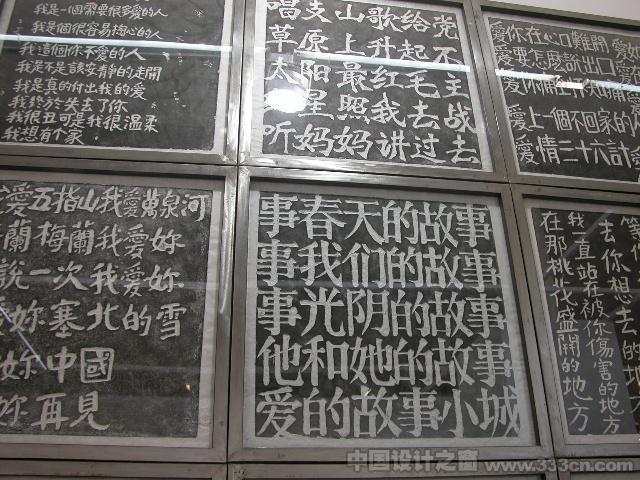 我是一個需要很多愛的人
我是個很容易心的人
我這個你不愛的人
我是不是該安靜的走開
我是真的付出我的愛
我終於失去了你
我很丑可是我很温柔
我想有个家
唱支山歌给党
草原上升起不
太阳最红毛主
星照我去战
听妈妈讲过去
愛你在心口難開 愛
愛要怎麼說出口 愛
愛你
愛上一個不回家的
愛情三十六計
愛五指山我愛萬泉河
蘭梅蘭我愛妳
説一次我愛妳
妳塞北的雪
妳中國
妳再見
事春天的故事
事我们的故事
事光阴的故事
他和她的故事
爱的故事小城
等你
去你想去的地
我一直站在被你傷害的地方
在那桃花盛開的地方
中国设计之窗 www.333cn.com